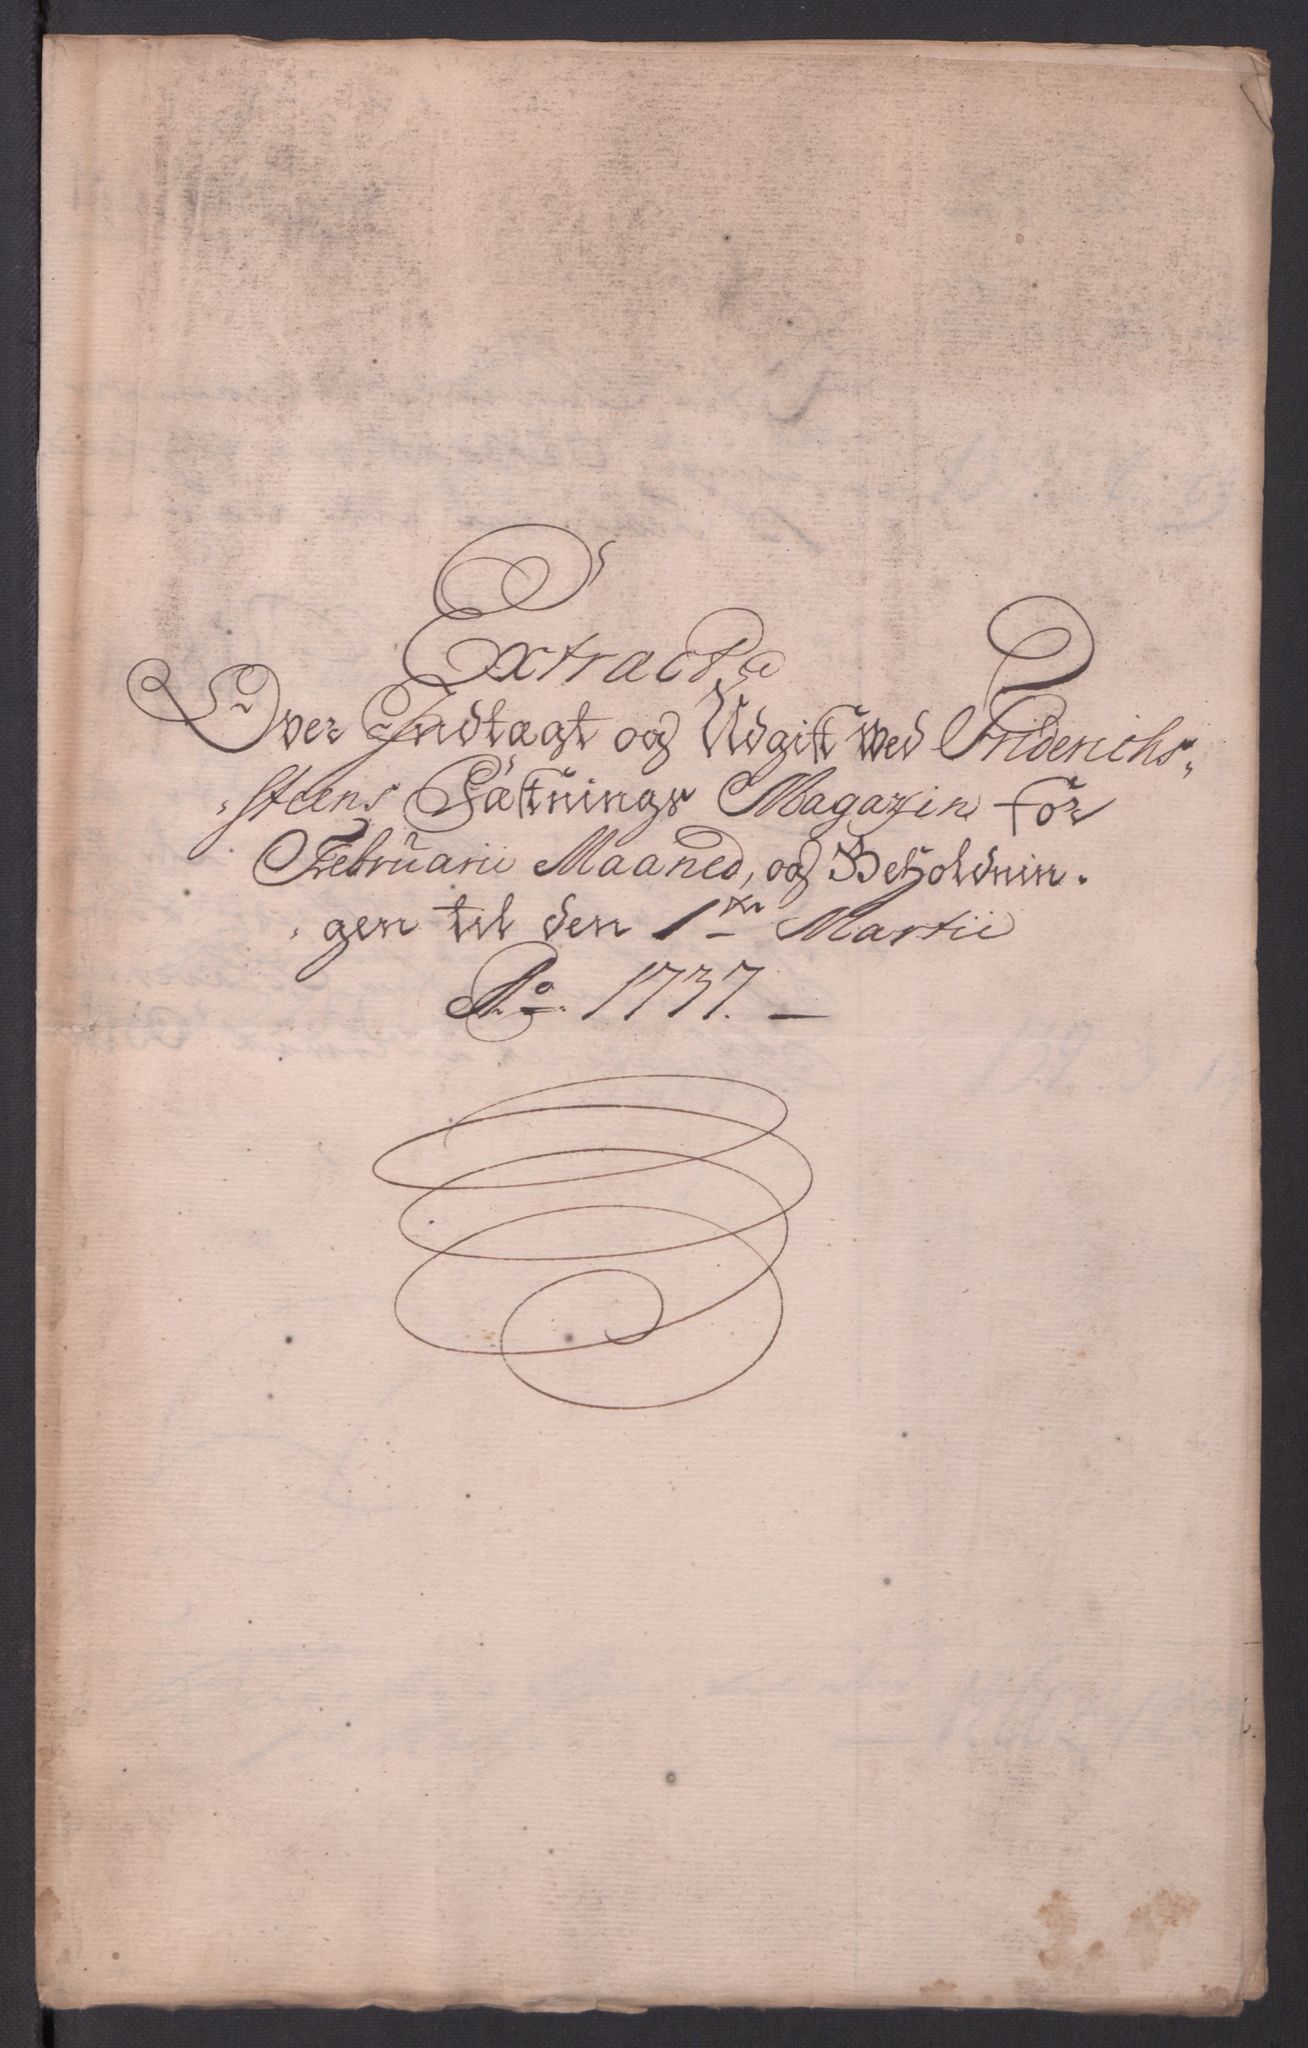 Extract
Over Indtægt og Udgift wed Friderichs-
-steens Fæstnings Magazin for
Februarii Maaned, og Beholdnin-
-gen til den 1ste Martii
Ao. 1737. —